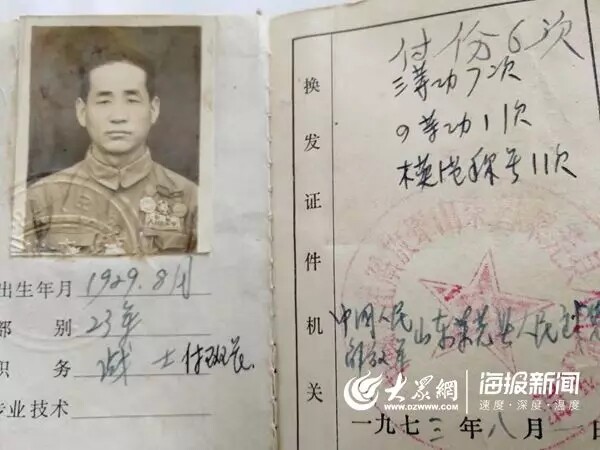 出生年月 1929.8月
部别 23年
职务 战士付班长
专业技术
付份6次
三等功7次
四等功11次
模范称号11次
换发证件机关
中国人民解放军山东莱芜县人民
一九七三年八月一日
大众網
WWW.DZWWW.COM
海报新闻
速度·深度·温度